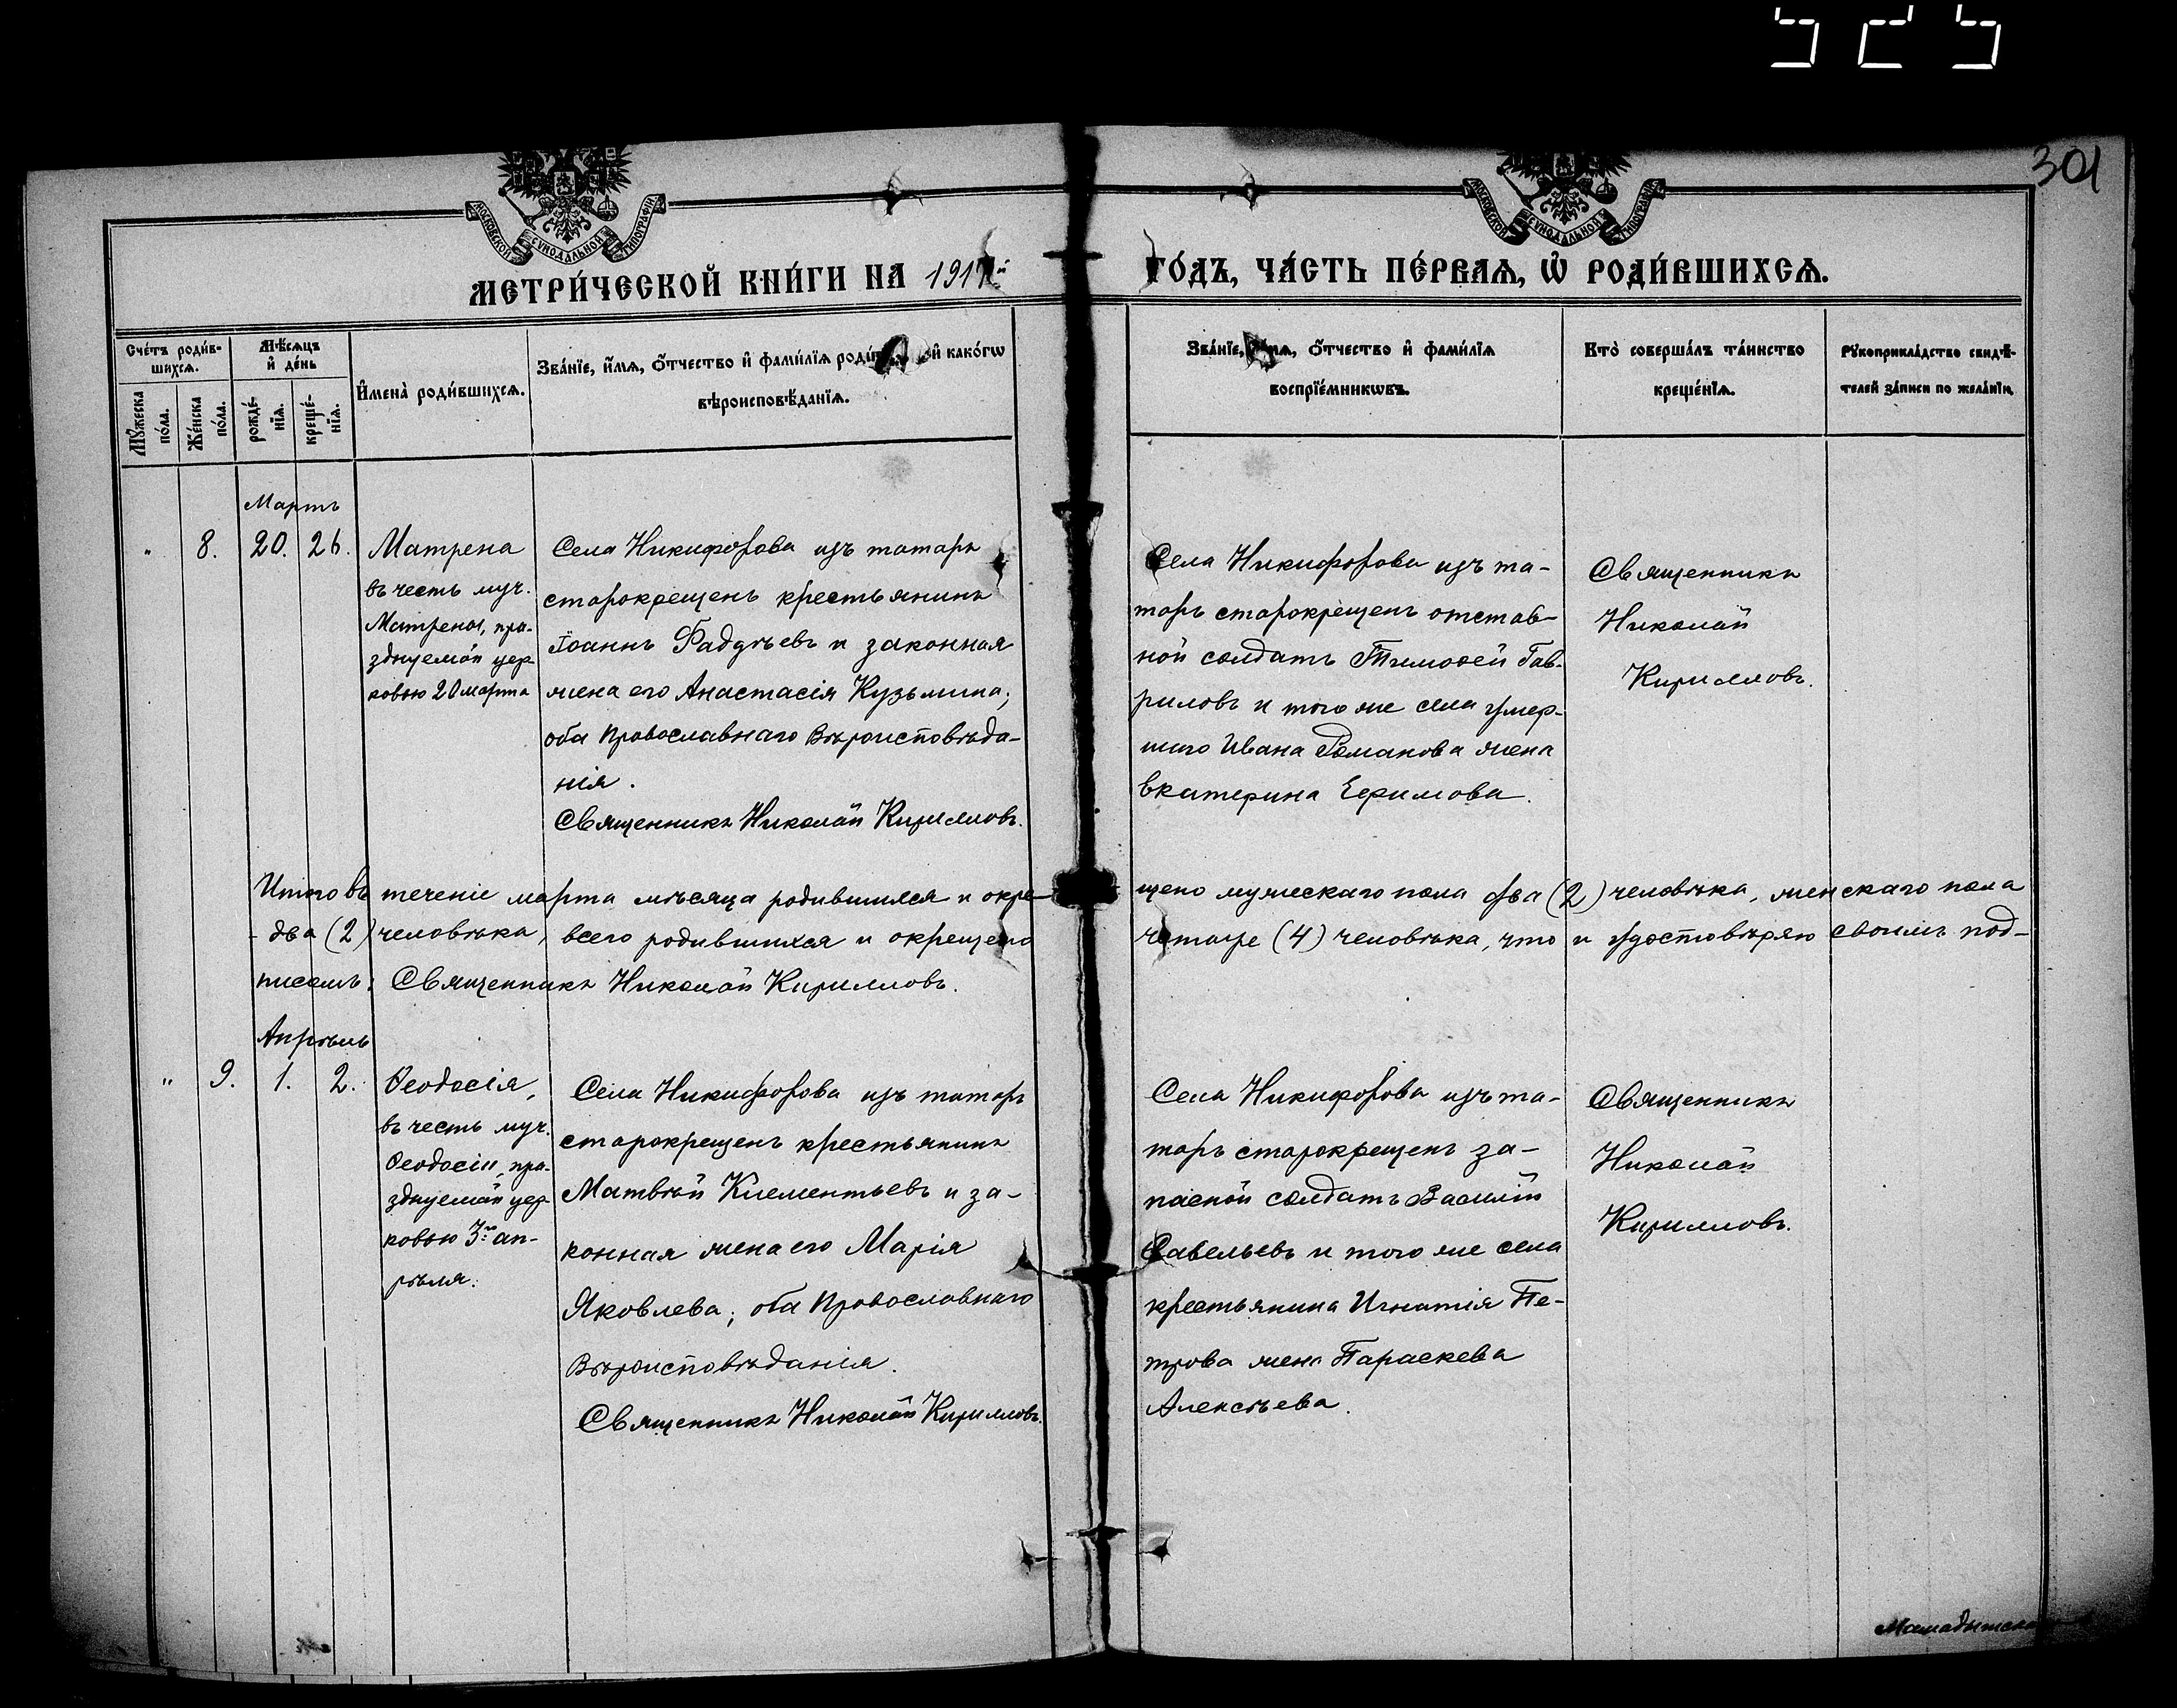 525
301
МОСКОВСКОЙ СѴНОДАЛЬНОЙ ТИПОГРАФІИ
МОСКОВСКОЙ СѴНОДАЛЬНОЙ ТИПОГРАФІИ
МЕТРИ́ЧЕСКОЙ КНИ́ГИ НА 1917й ГО́ДЪ, ЧА́СТЬ ПЕ́РВАѦ, Ѡ҆ РОДИ́ВШИХСѦ.
Сче́тъ роди́в-
шихсѧ.
Мѣ́сѧцъ
и҆ де́нь
Мꙋ́жеска
по́ла.
Же́нска
по́ла.
рожде́-
нїѧ.
креще́-
нїѧ.
И҆мена̀ роди́вшихсѧ.
Зва́нїе, и҆́мѧ, о҆́тчество и҆ фами́лїѧ и҆ како́гѡ
вѣроисповѣ́данїѧ.
Зва́нїе, и҆́мѧ, о҆́тчество и҆ фами́лїѧ
воспрїе́мникѡвъ.
Кто̀ соверша́лъ та́инство
креще́нїѧ.
Рꙋкоприкла́дство свидѣ́-
телей за́писи по жела́нїю.
Мартъ
" 8. 20. 26.
Матрена
въ честь муч.
Матрены, пра-
зднуемой цер-
ковью 20 марта
Села Никифорова изъ татаръ
старокрещенъ крестьянинъ
Іоаннъ Фаддѣевъ и законная
жена его Анастасія Кузьмина;
оба Православнаго Вѣроисповѣда-
нія.
Священникъ Николай Кирилловъ.
Села Никифорова изъ та-
таръ старокрещенъ отстав-
ной солдатъ Тимоѳей Гав-
риловъ и того же села умер-
шаго Ивана Романова жена
Екатерина Ефимова.
Священникъ
Николай
Кирилловъ.
Итого въ теченіе марта мѣсяца родившихся и окре-
щено мужескаго пола два (2) человѣка, женскаго пола
- два (2) человѣка, всего родившихся и окрещено
четыре (4) человѣка, что и удостовѣряю своимъ под-
писомъ: Священникъ Николай Кирилловъ.
Апрѣль
" 9. 1. 2.
Ѳеодосія,
въ честь муч.
Ѳеодосіи, пра-
зднуемой цер-
ковью 3го ап-
рѣля.
Села Никифорова изъ татаръ
старокрещенъ крестьянинъ
Матвѣй Клементьевъ и за-
конная жена его Марія
Яковлева; оба Православнаго
Вѣроисповѣданія.
Священникъ Николай Кирилловъ.
Села Никифорова изъ та-
таръ старокрещенъ за-
пасной солдатъ Василій
Савельевъ и того же села
крестьянина Игнатія Пе-
трова жена Параскева
Алексѣева.
Священникъ
Николай
Кирилловъ.